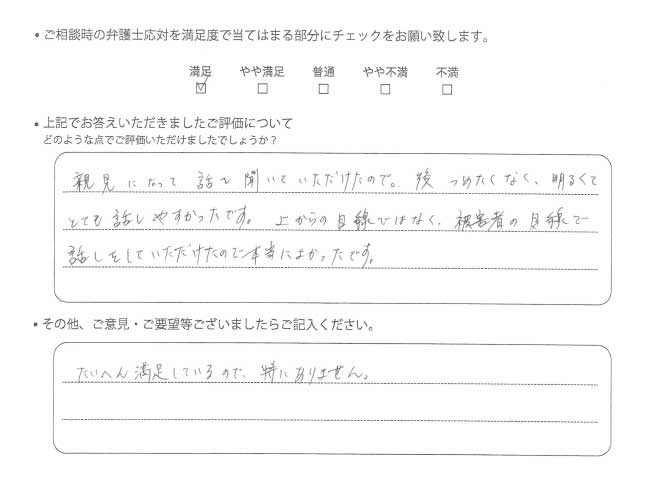 ・ご相談時の弁護士応対を満足度で当てはまる部分にチェックをお願い致します。
満足 やや満足 普通 やや不満 不満
・上記でお答えいただきましたご評価について
どのような点でご評価いただけましたでしょうか？
親見になって 話を 聞いていただけたので。後 つめたくなく、明るくて
とても 話しやすかったです。上からの目線ではなく、被害者の目線で
話しをしていただけたので本当によかったです。
・その他、ご意見・ご要望等ございましたらご記入ください。
たいへん満足しているので、特にありません。